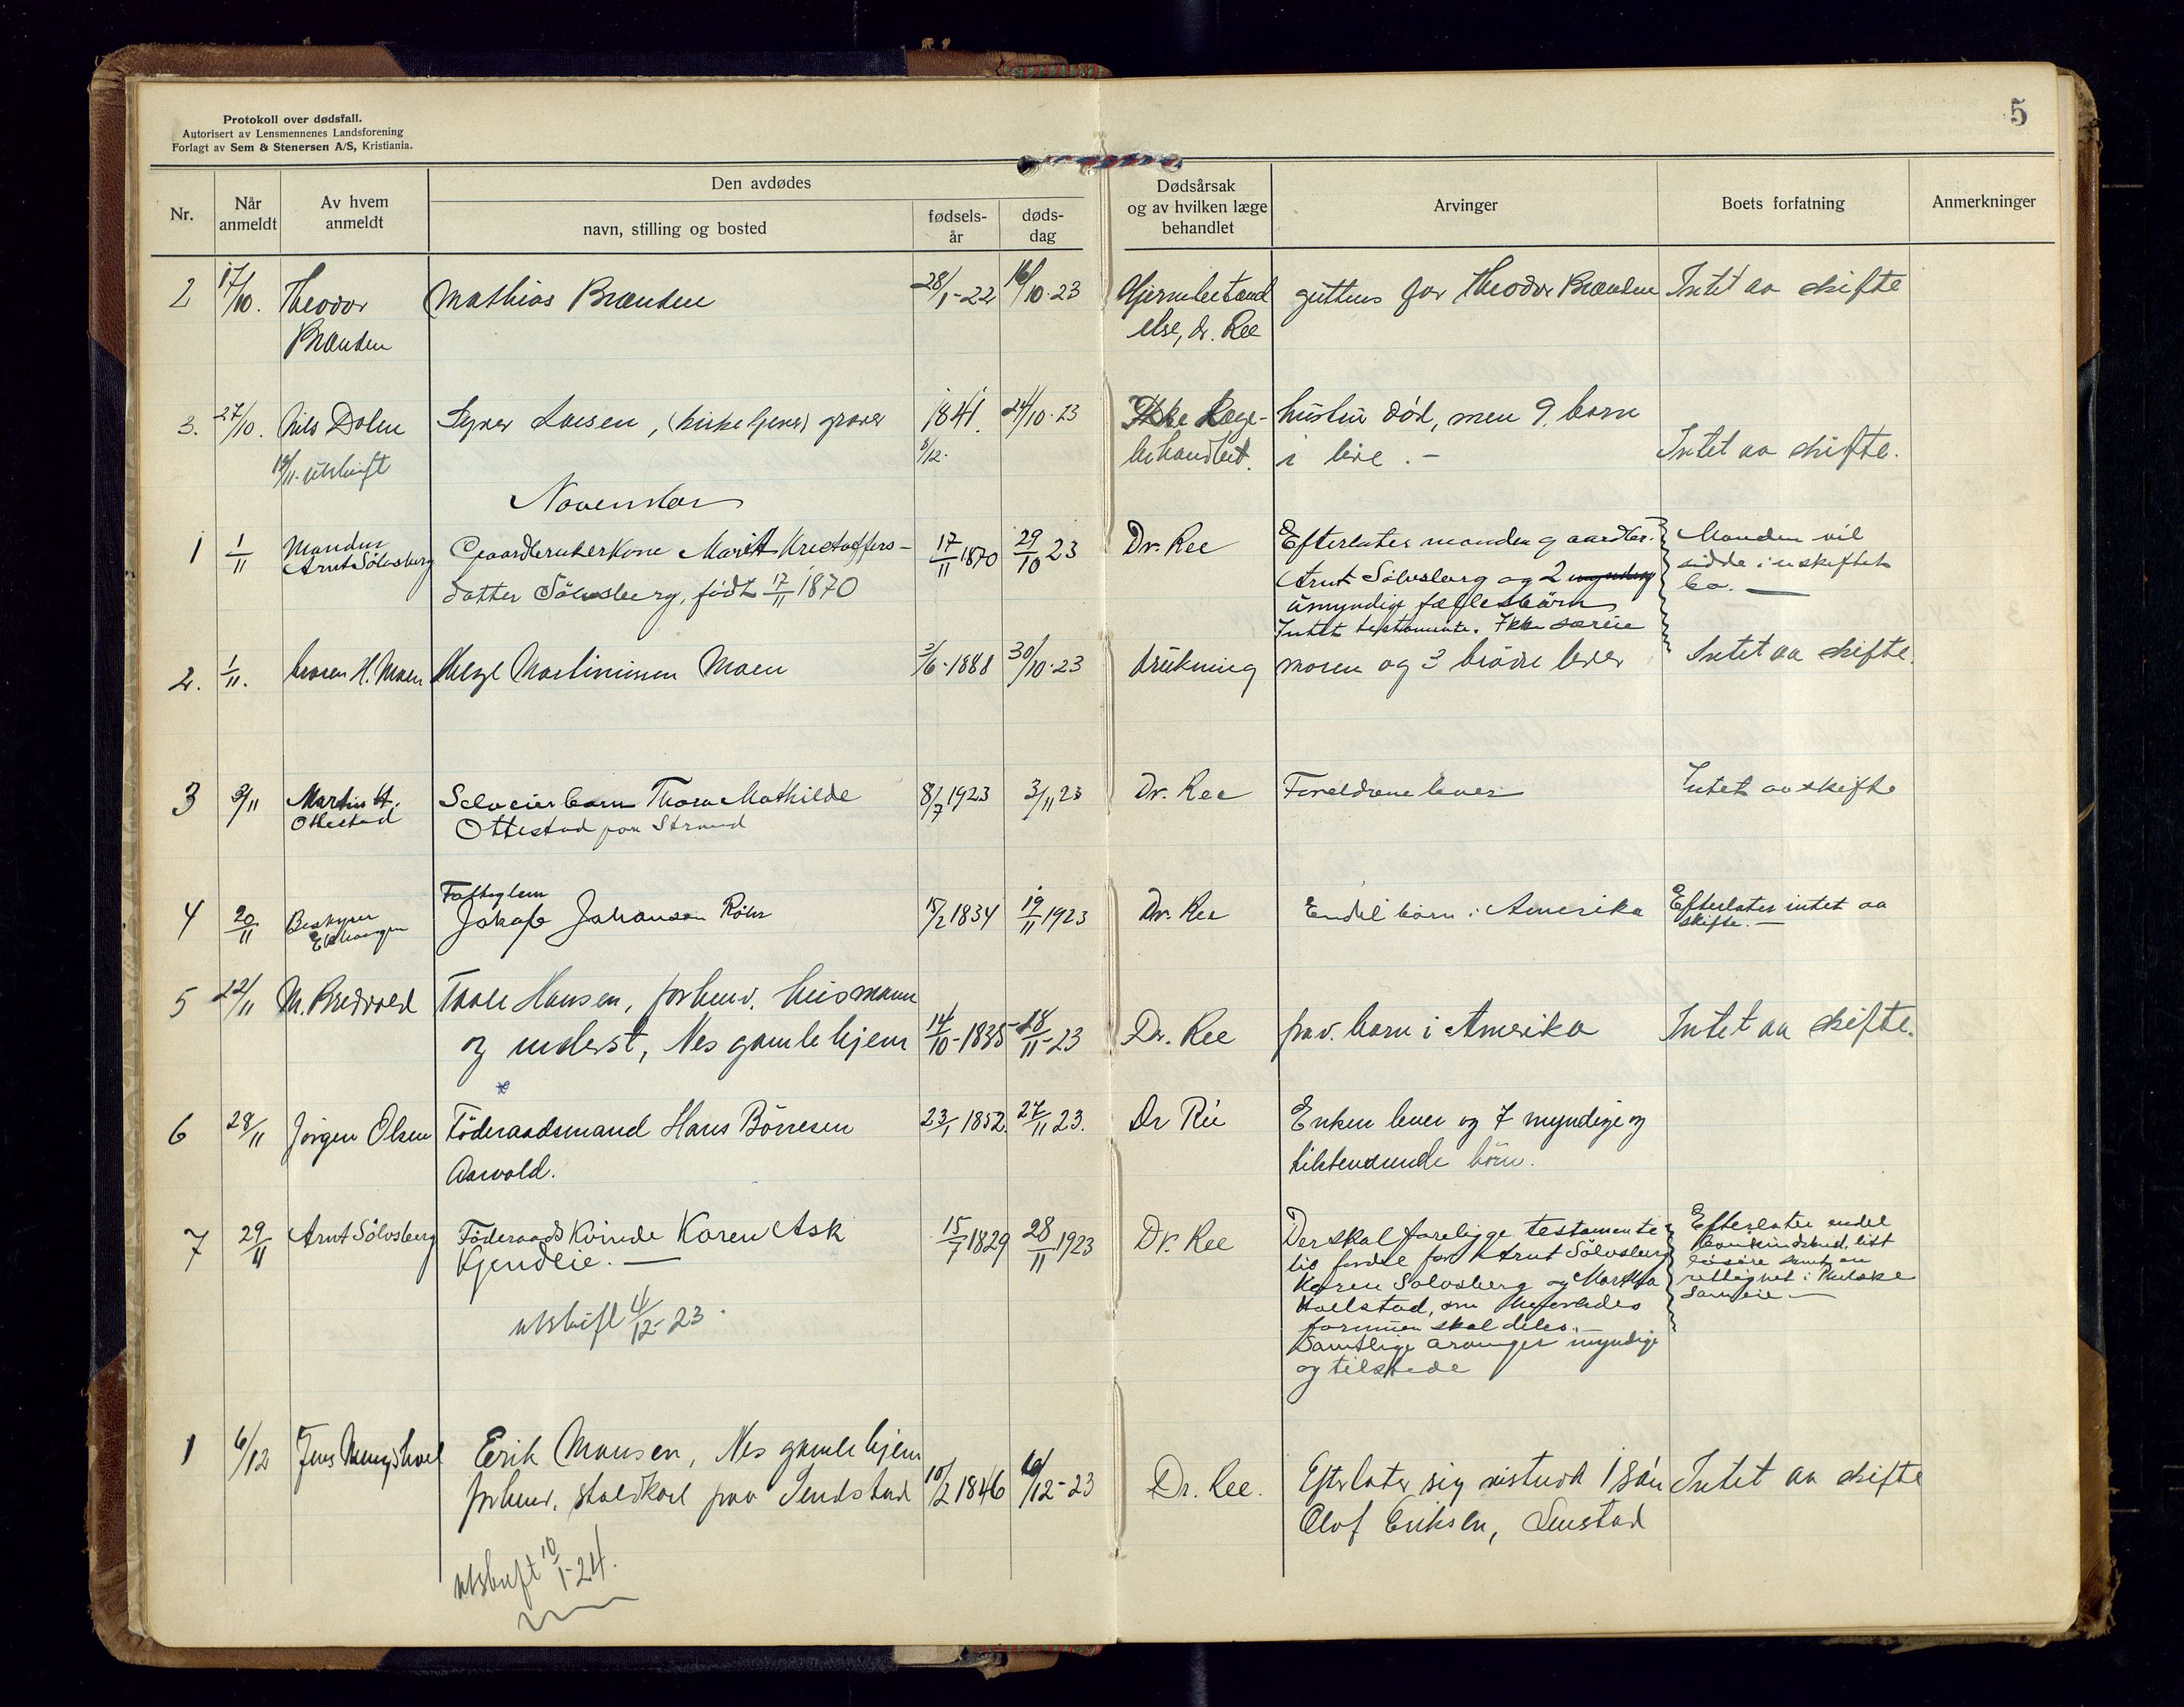 5
Protokoll over dødsfall.
Autorisert av Lensmennenes Landsforening
Forlagt av Sem & Stenersen A/S, Kristiania.
Nr.
Når anmeldt
Av hvem anmeldt
Den avdødes
navn, stilling og bosted
fødsels-år
døds-dag
Dødsårsak og av hvilken læge behandlet
Arvinger
Boets forfatning
Anmerkninger
2 17/10. Theodor Mathias Brænden 28/1-22 16/10-23 Hjernebetænd guttens far Theodor Brænden Intet aa skifte
Brænden else, dr. Ree
3. 27/10. Nils Dalen Syver Larsen, (kirketjener) graver 1841. 24/10-23 Ikke Læge- hustru död, men 9 barn
12/11. utskrift 8/12. behandlet. i live. - Intet aa skifte.
November
1 1/11 Manden Gaardbrukerkone Marit Kristoffers- 17/11 1870 29/10 23 Dr. Ree Efterlater manden gaardbr. Manden vil
Arnt Sölvsberg datter Sölvsberg, födt 17/11 1870 Arnt Sölvsberg og 2 myndig sidde i uskiftet
umyndige fællesbörn bo. —
Intet testamente. Ikke særeie
2. 1/11. H. Moen Helge Martinius Moen 3/6-1888 30/10-23 drukning moren og 3 brödre lever Intet aa skifte.
3 3/11 Martin H. Selveierbarn Thora Mathilde 8/7 1923 3/11 23 Dr. Ree Foreldrene lever Intet aa skifte
Ottestad Ottestad paa Strand
4 20/11 Bestyrer Fattiglem 15/2 1834 19/11 1923 Dr. Ree Endel börn i Amerika Efterlater intet aa
Jakob Johansen Röhr skifte. —
5 22/11 M. Bredvold Taale Hansen, forhenv. husmann
og inderst, Nes gamlehjem 14/10-1835 18/11-23 Dr. Ree barn i Amerika Intet aa skifte.
6 28/11 Jörgen Olsen Föderaadsmand Hans Börresen 23/1 1852. 27/11 23. Dr Ree Enken lever og 7 myndige og
Aasvold. tilstedeværende börn.
7 29/11 Arnt Sölvsberg Föderaadskvinde Karen Ask 15/7 1829 28/11 1923 Dr. Ree Der skal foreligge testamente Efterlater endel
Kjendlie. — til fordel for Arnt Sölvsberg bankindskud, litt
Karen Sölvsberg og Martha lösöre samt en
utskrift 4/12-23. Hoelstad, om hvorledes rettighet i
formuen skal deles. — Sameie —
Samtlige arvinger myndige
og tilstede
1 6/12 Jens Mengshoel Erik Monsen, Nes gamlehjem
forhenv. staldkarl paa Tendstad 10/2 1846 6/12-23 Dr. Ree. Efterlater sig 1 sön Intet aa skifte
Olof Eriksen,
utskrift 10/1-24.